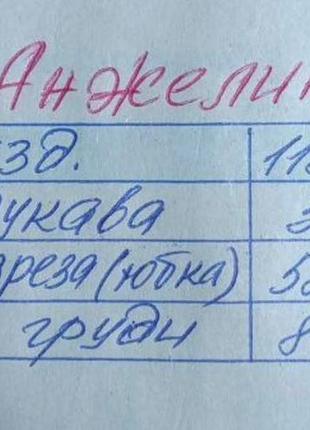 Анжели
зд. 11
укава 3
реза (юбка) 5
груди 8